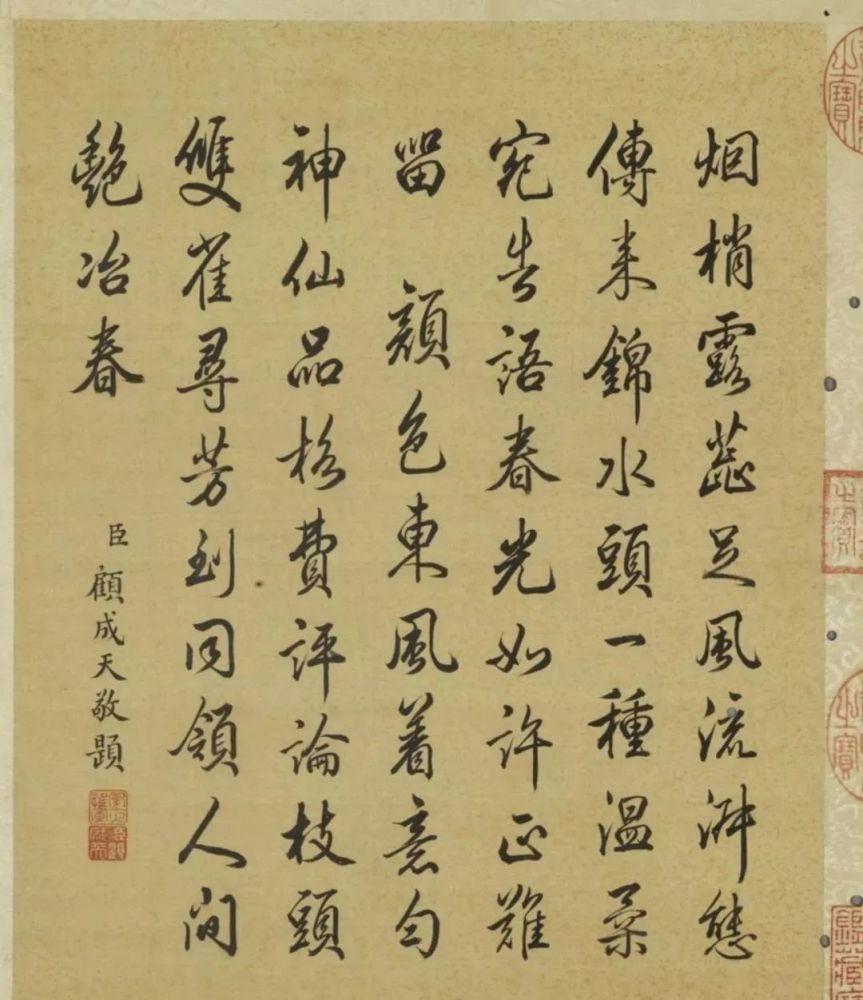 烟梢露蕋足風流淋態
傳来錦水頭一種温柔
宛告語春光如許正難
留 顏色東風着意勻
神仙品格費評論枝頭
雙雀尋芳到同領人間
艶冶春
臣顧成天敬題